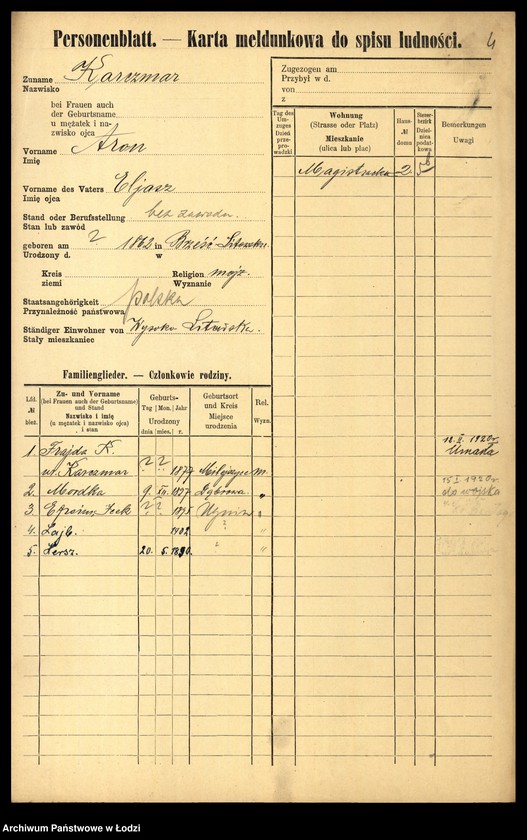 Personenblatt. — Karta meldunkowa do spisu ludności. 4
Zuname Karczmar
Nazwisko
bei Frauen auch
der Geburtsname
u mężatek i na-
zwisko ojca
Vorname Aron
Imię
Vorname des Vaters Eljasz
Imię ojca
Stand oder Berufsstellung bez zawodu.
Stan lub zawód
geboren am ? 1862 in Brześć Litewsku.
Urodzony d. w
Kreis Religion mojż.
ziemi Wyznanie
Staatsangehörigkeit polska
Przynależność państwowa
Ständiger Einwohner von Wysoko Litewska.
Stały mieszkaniec
Zugezogen am
Przybył w d.
von
z
Tag des
Um-
zuges
Dzień
prze-
prowadzki
Wohnung
(Strasse oder Platz)
Mieszkanie
(ulica lub plac)
Haus-
№
domu
Steuer-
bezirk
Dzielni-
ca podat-
kowa
Bemerkungen
Uwagi
Magistracka 2 5b
Familienglieder. — Członkowie rodziny.
Lfd.
№
bież.
Zu- und Vorname
(bei Frauen auch der Geburtsname)
und Stand
Nazwisko i imię
(u mężatek i nazwisko ojca)
i stan
Geburts-
Tag Mon. Jahr
Urodzony
dnia mies. r.
Geburtsort
und Kreis
Miejsce
urodzenia
Rel.
Wyzn.
1. Frajda K.
ur. Karczmar ? ? 1877 m.
18.II.1920r
Umarła
2. Mordka 9. XII. 1897 Dąbrowa "
15 I 1920r
do wojska
3. ? ? "
4. Lajb. 1902 ? "
5. Hersz. 20. 5. 1890. " "
Archiwum Państwowe w Łodzi